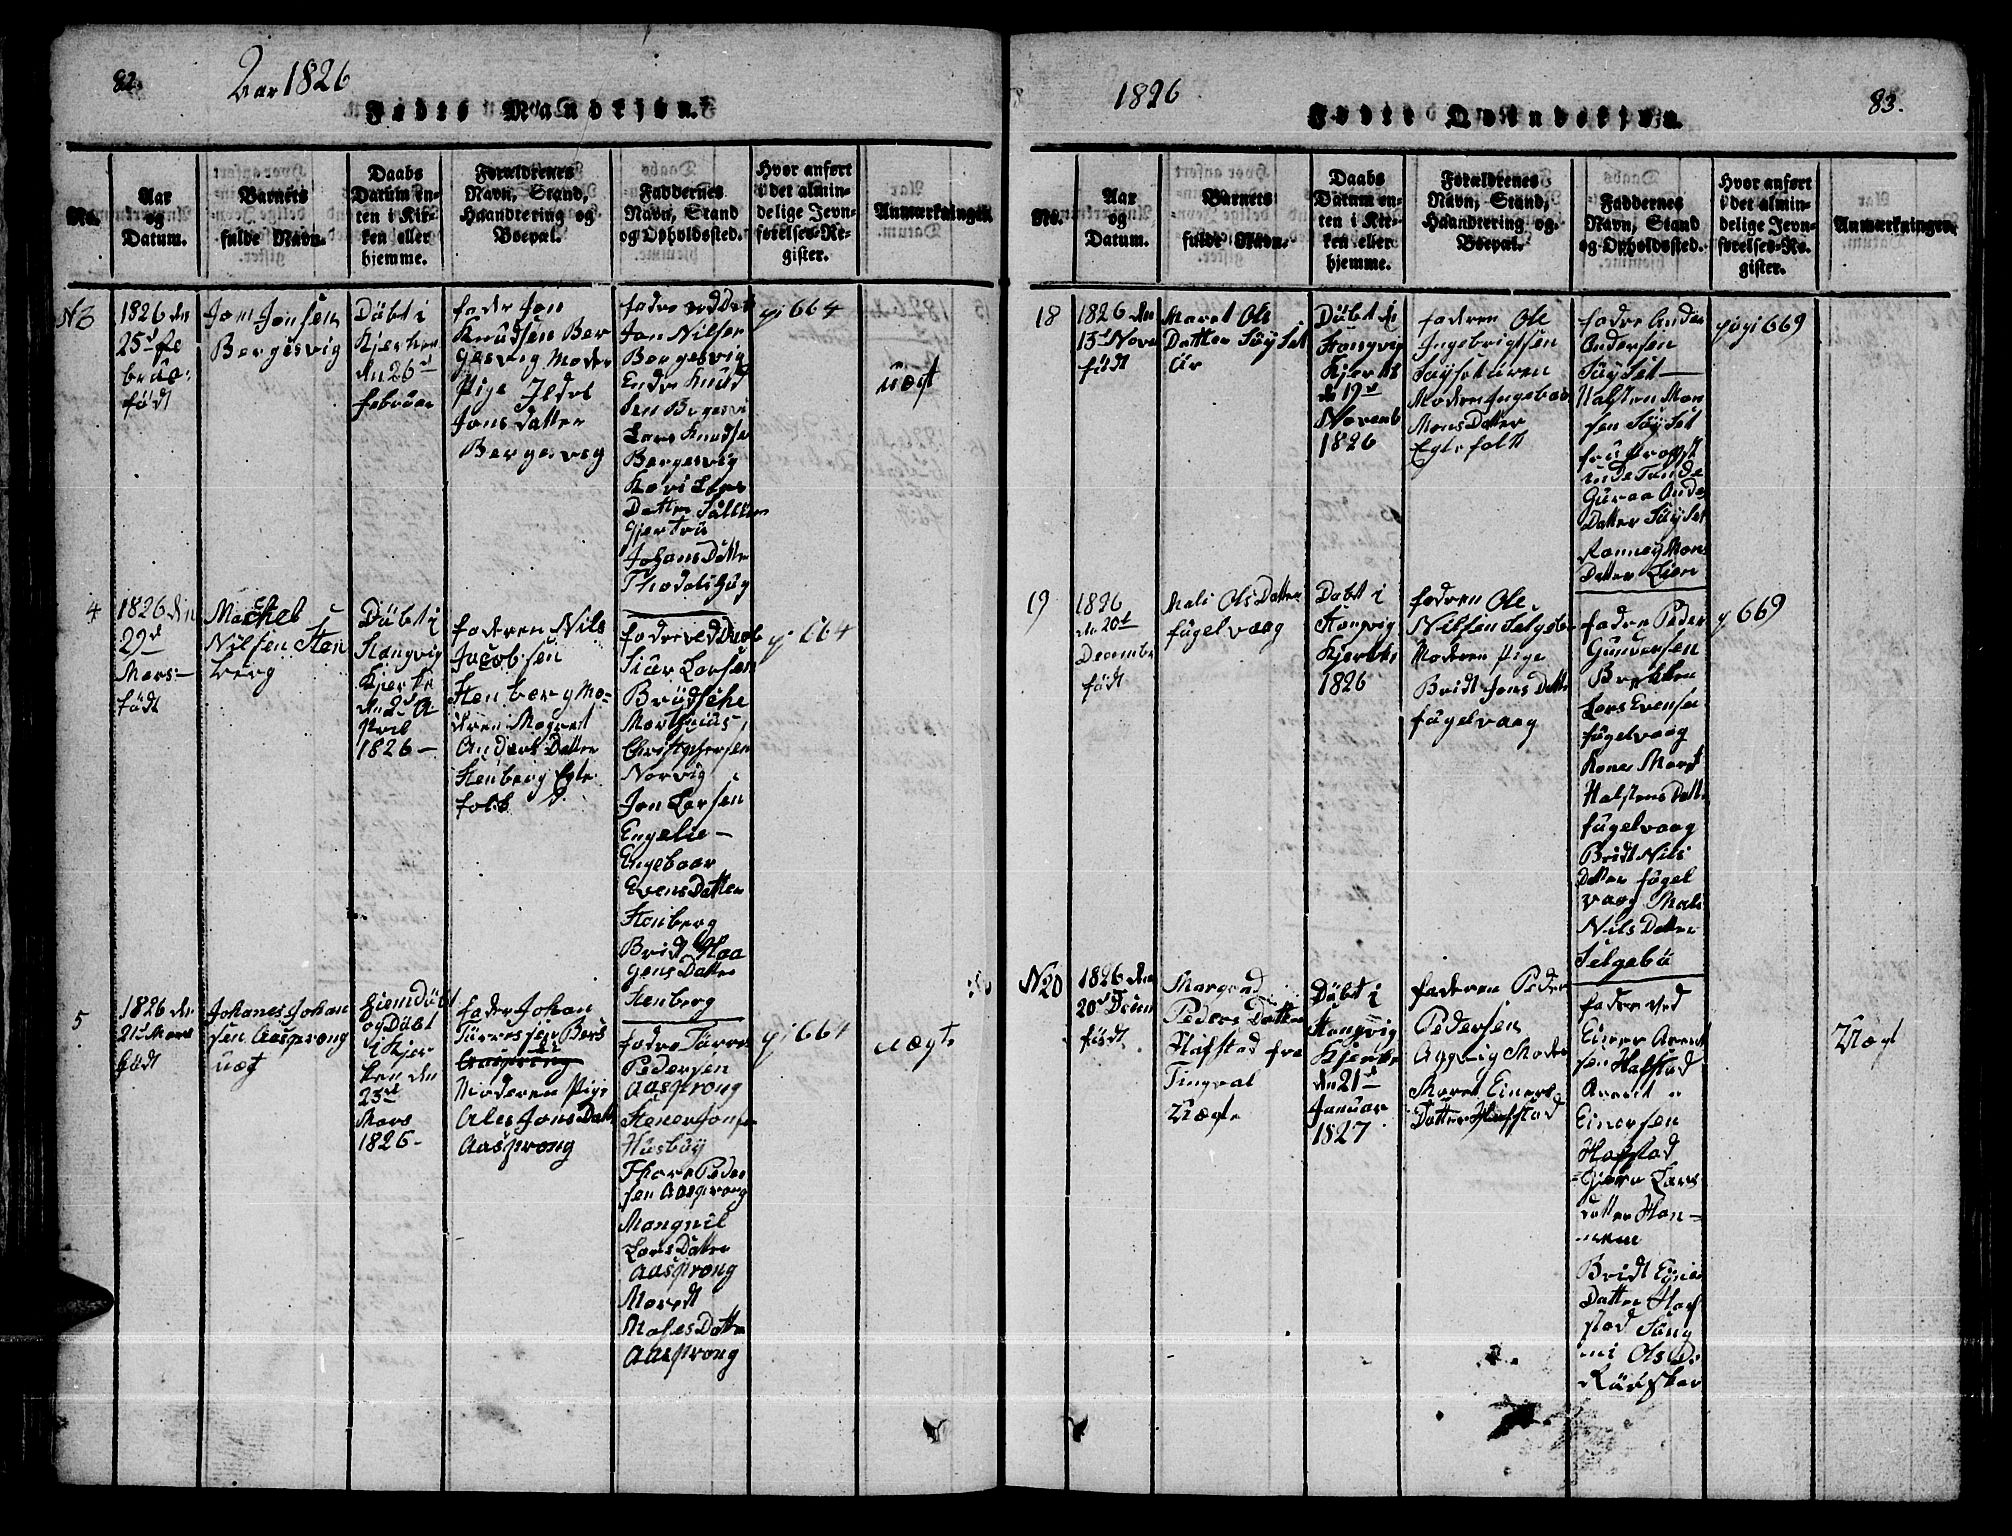 82.
Aar 1826
Fødte Mandkjøn.
No.
Aar
og
Datum.
Barnets
fulde Navn.
Daabs
Datum en-
ten i Kir-
ken eller
hjemme.
Forældrenes
Navn, Stand,
Haandtering og
Boepæl.
Faddernes
Navn, Stand
og Opholdssted.
Hvor anført
i det almin-
delige Jevn-
førelses-Re-
gister.
Anmærkninger.
N3
1826 den
25d fe
bruar
født
Jon Jonsen
Bergesvig
Døbt i
Kjerken
den 26d
februar
fader Jon
Knudsen Ber
gesvig Moder
Pige Ildri
Jons Datter
Bergesvig
fadre ved Deb
Jon Nilsen
Bergesvig
Endre Knud
sen Bergesvi
Lars Knudse
Bergesvig
Kari Lars
Datter
Gjertru
Johans Datter
pi 664
uægt
4
1826 den
29d
Mars
født
Mickel
Nilsen Sten
berg
Døbt i
Stangvig
Kjerke
den 2d A
pril
1826 –
faderen Nils
Jacobsen
Stenberg Mo-
dren Magret
Anders Datter
Stenberg Egte
folk
fadre ved Daab
Siver Larsen
Morthinus
Christophersen
Norvig
Jon Larsen
Engelie –
Engebaar
Evens Datter
Stenberg
Bridt Haa
gens Datter
Stenberg
pi 664
5
1826 den
21d Mars
født
Johanes Johan
sen Aasprong
uægt
Hiemdøbt
og Døbt
i Kjer
ken den
23d
Mars
1826 –
fader Johan
Tørressen
Moderen Pige
Ales Jons Datt
Aasprong
fadre Tørres
Pedersen
Aasprong
Stener Jonsen
Husbøy
Thore Peder
sen Aasprong
Mangnil
Lars Datter
Aasprong
Maredt
Datter
Aasprong
pi 664
uægte
1826
83.
Fødte Qvindekjøn.
No.
Aar
og
Datum.
Barnets
fulde Navn.
Daabs
Datum en-
ten i Kir-
ken eller
hjemme.
Forældrenes
Navn, Stand,
Haandtering og
Boepæl.
Faddernes
Navn, Stand
og Opholdssted.
Hvor anført
i det almin-
delige Jevn-
førelses-Re-
gister.
Anmærkninger.
18
1826 den
13d Nove
født
Maret Ols
Datter Søyset
ør
Døbt i
Stangvig
Kjerke
den 19d
Novemb
1826
faderen Ole
Ingebrigtsen
Søysetøren
Moderen Ingebor
Mons Datter
Egtefolk
fadre Ander
Andersen
Søyset –
Halsten Mon
sen Søyset
Guraa Ander
Datter Søyset
Ranney Mons
Datter Lien
pagi 669
19
1826
den 20d
December
født
Mali Ols Datter
fugelvaag
Døbt i
Stangvig
Kjerke
1826
fadren Ole
Nilsen Selgebø
Moderen Pige
Bridt Jons Datter
fugelvaag
fadre Peder
Gundersen
Brekken
Lars Evensen
fugelvaag
Kones Maret
Halstens Datt
fugelvaag
Bridt Nils
Datter fugel
vaag Mali
Nils Datter
Selgebø
p 669
N20
1826 den
20d Decem
født
Margred
Peders Datter
Hafstad fra
Tingval
Uægte
Døbt i
Stangvig
Kjerke
den 21d
Januar
1827
faderen Peder
Pedersen
Aggvig Moder
Maret Einers
Datter Hafstad
fadre ved
Einer Arent
sen Hafstad
Arent
Einersen
Hafstad
Lars
datter Han-
nem
Bridt Einer
Datter Haf
stad
Ols D.
Uægt